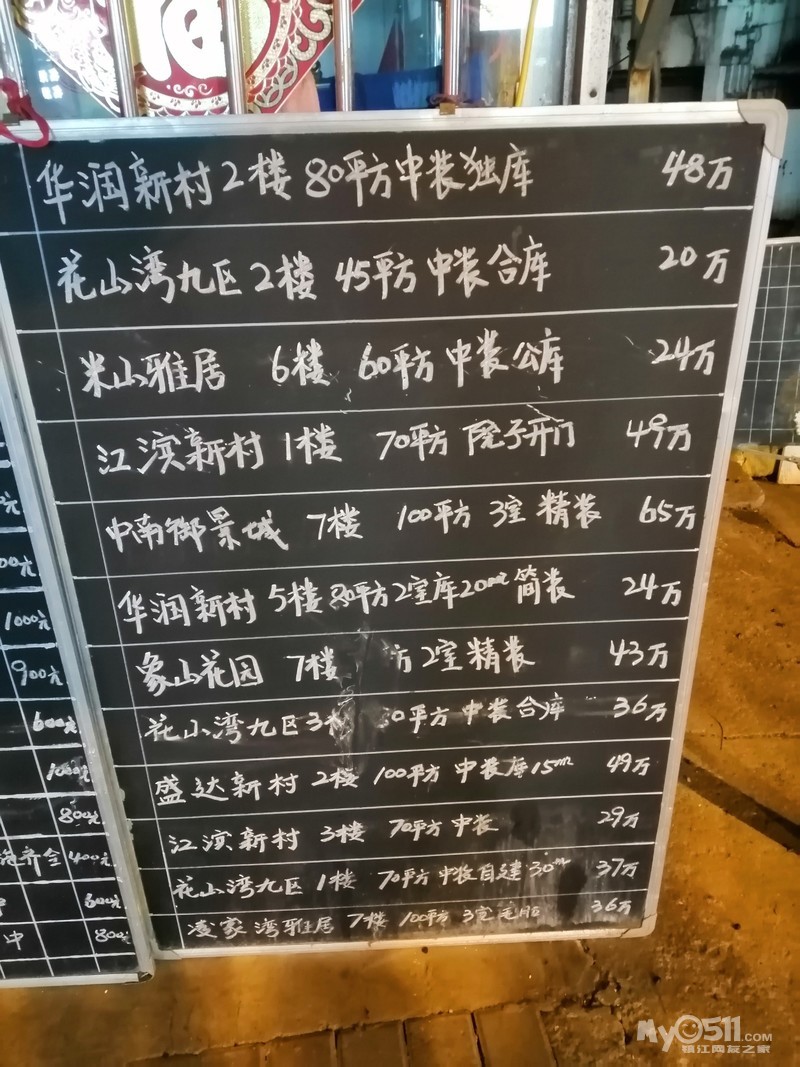 华润新村 2楼 80平方中装独库 48万
花山湾九区 2楼 45平方 中装合库 20万
米山雅居 6楼 60平方 中装公库 24万
江滨新村 1楼 70平方 院子开门 49万
中南御景城 7楼 100平方 3室 精装 65万
华润新村 5楼 80平方 2室库20m 简装 24万
象山花园 7楼 方 2室精装 43万
花山湾九区 3楼 0平方 中装合库 36万
盛达新村 2楼 100平方 中装库15m 49万
江滨新村 3楼 70平方 中装 29万
花山湾九区 1楼 70平方 中装自建30m 37万
凌家湾雅居 7楼 100平方 3室毛胚 36万
元
00元
1000元
900元
600元
1000元
800元
齐全 400元
600元
中 800元
My0511.COM
镇江网友之家